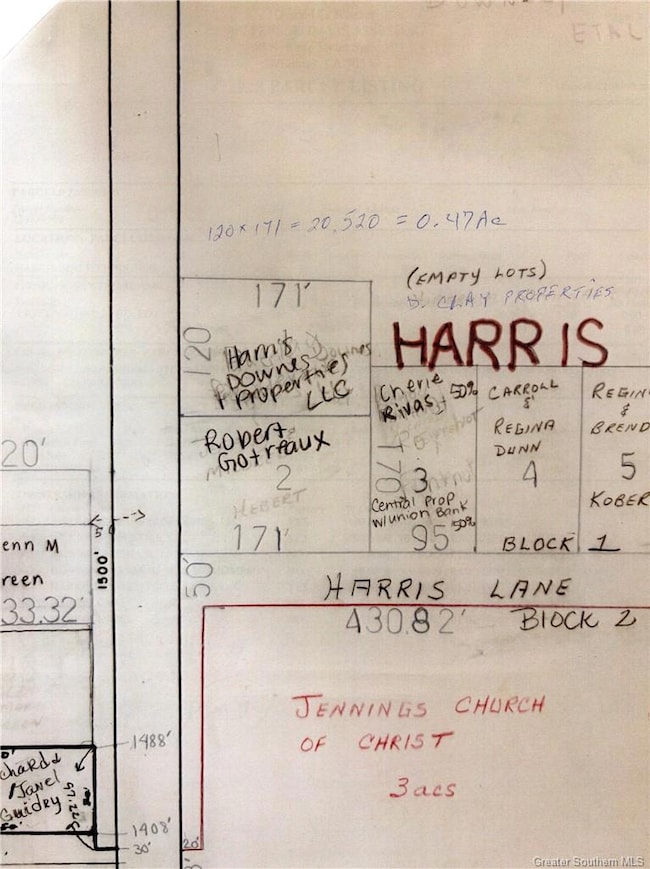 ETAL
120 x 171 = 20,520 = 0.47Ac
(EMPTY LOTS)
D. CLAY PROPERTIES
HARRIS
171'
120
Harris
Downes
Properties
LLC
Robert
Gotreaux
2
HEBERT
171'
Cherie 50%
Rivas
170
3
Central Prop
w/union Bank
50%
95
CARROLL
&
REGINA
DUNN
4
REGIN
&
BREND
5
KOBER
BLOCK 1
20'
50
enn M
reen
33.32'
1500'
50'
HARRIS LANE
430.82' BLOCK 2
JENNINGS CHURCH
OF CHRIST
3 acs
1488'
chard &
Janel
Guidry
97.22
1408'
30'
20'
Greater Southern MLS